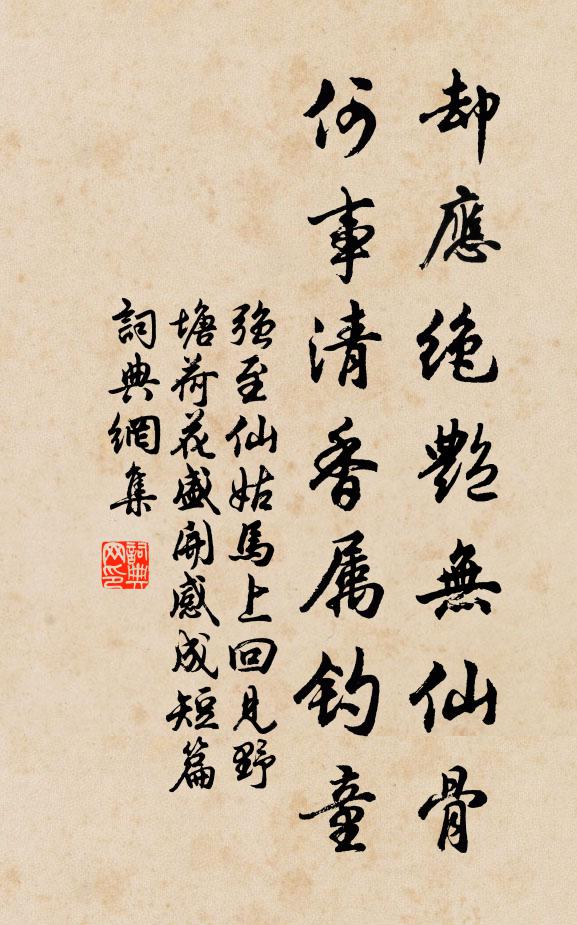 却應絶艷無仙骨
何事清香属釣童
强至仙姑馬上回見野
塘荷花盛開感成短篇
詞典網集
詞典网印